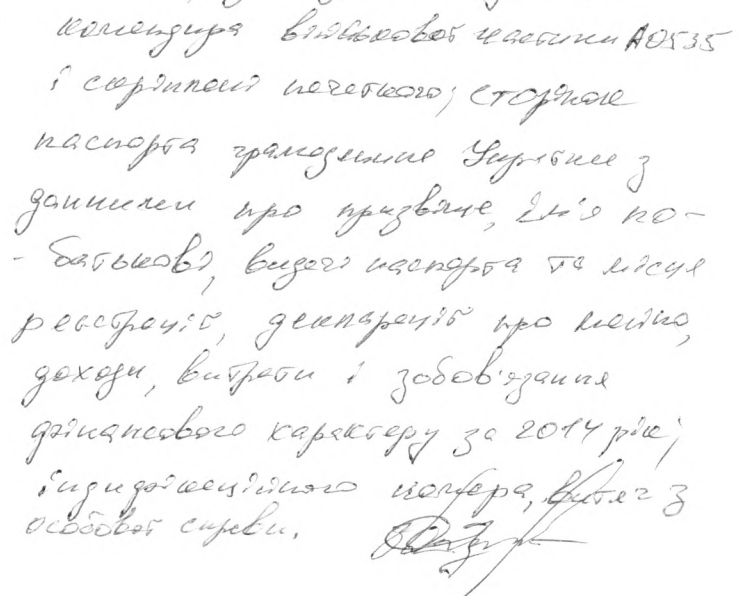 командира військової частини А0535
і скріплені печаткою; сторінок
паспорта громадянина України з
данними про прізвище, ім'я по-
- батькові, видачі паспорта та місця
реєстрації, декларації про майно,
доходи, витрати і зобов'язання
фінансового характеру за 2014 рік;
ідендифікаційного номера, витяг з
особової справи.